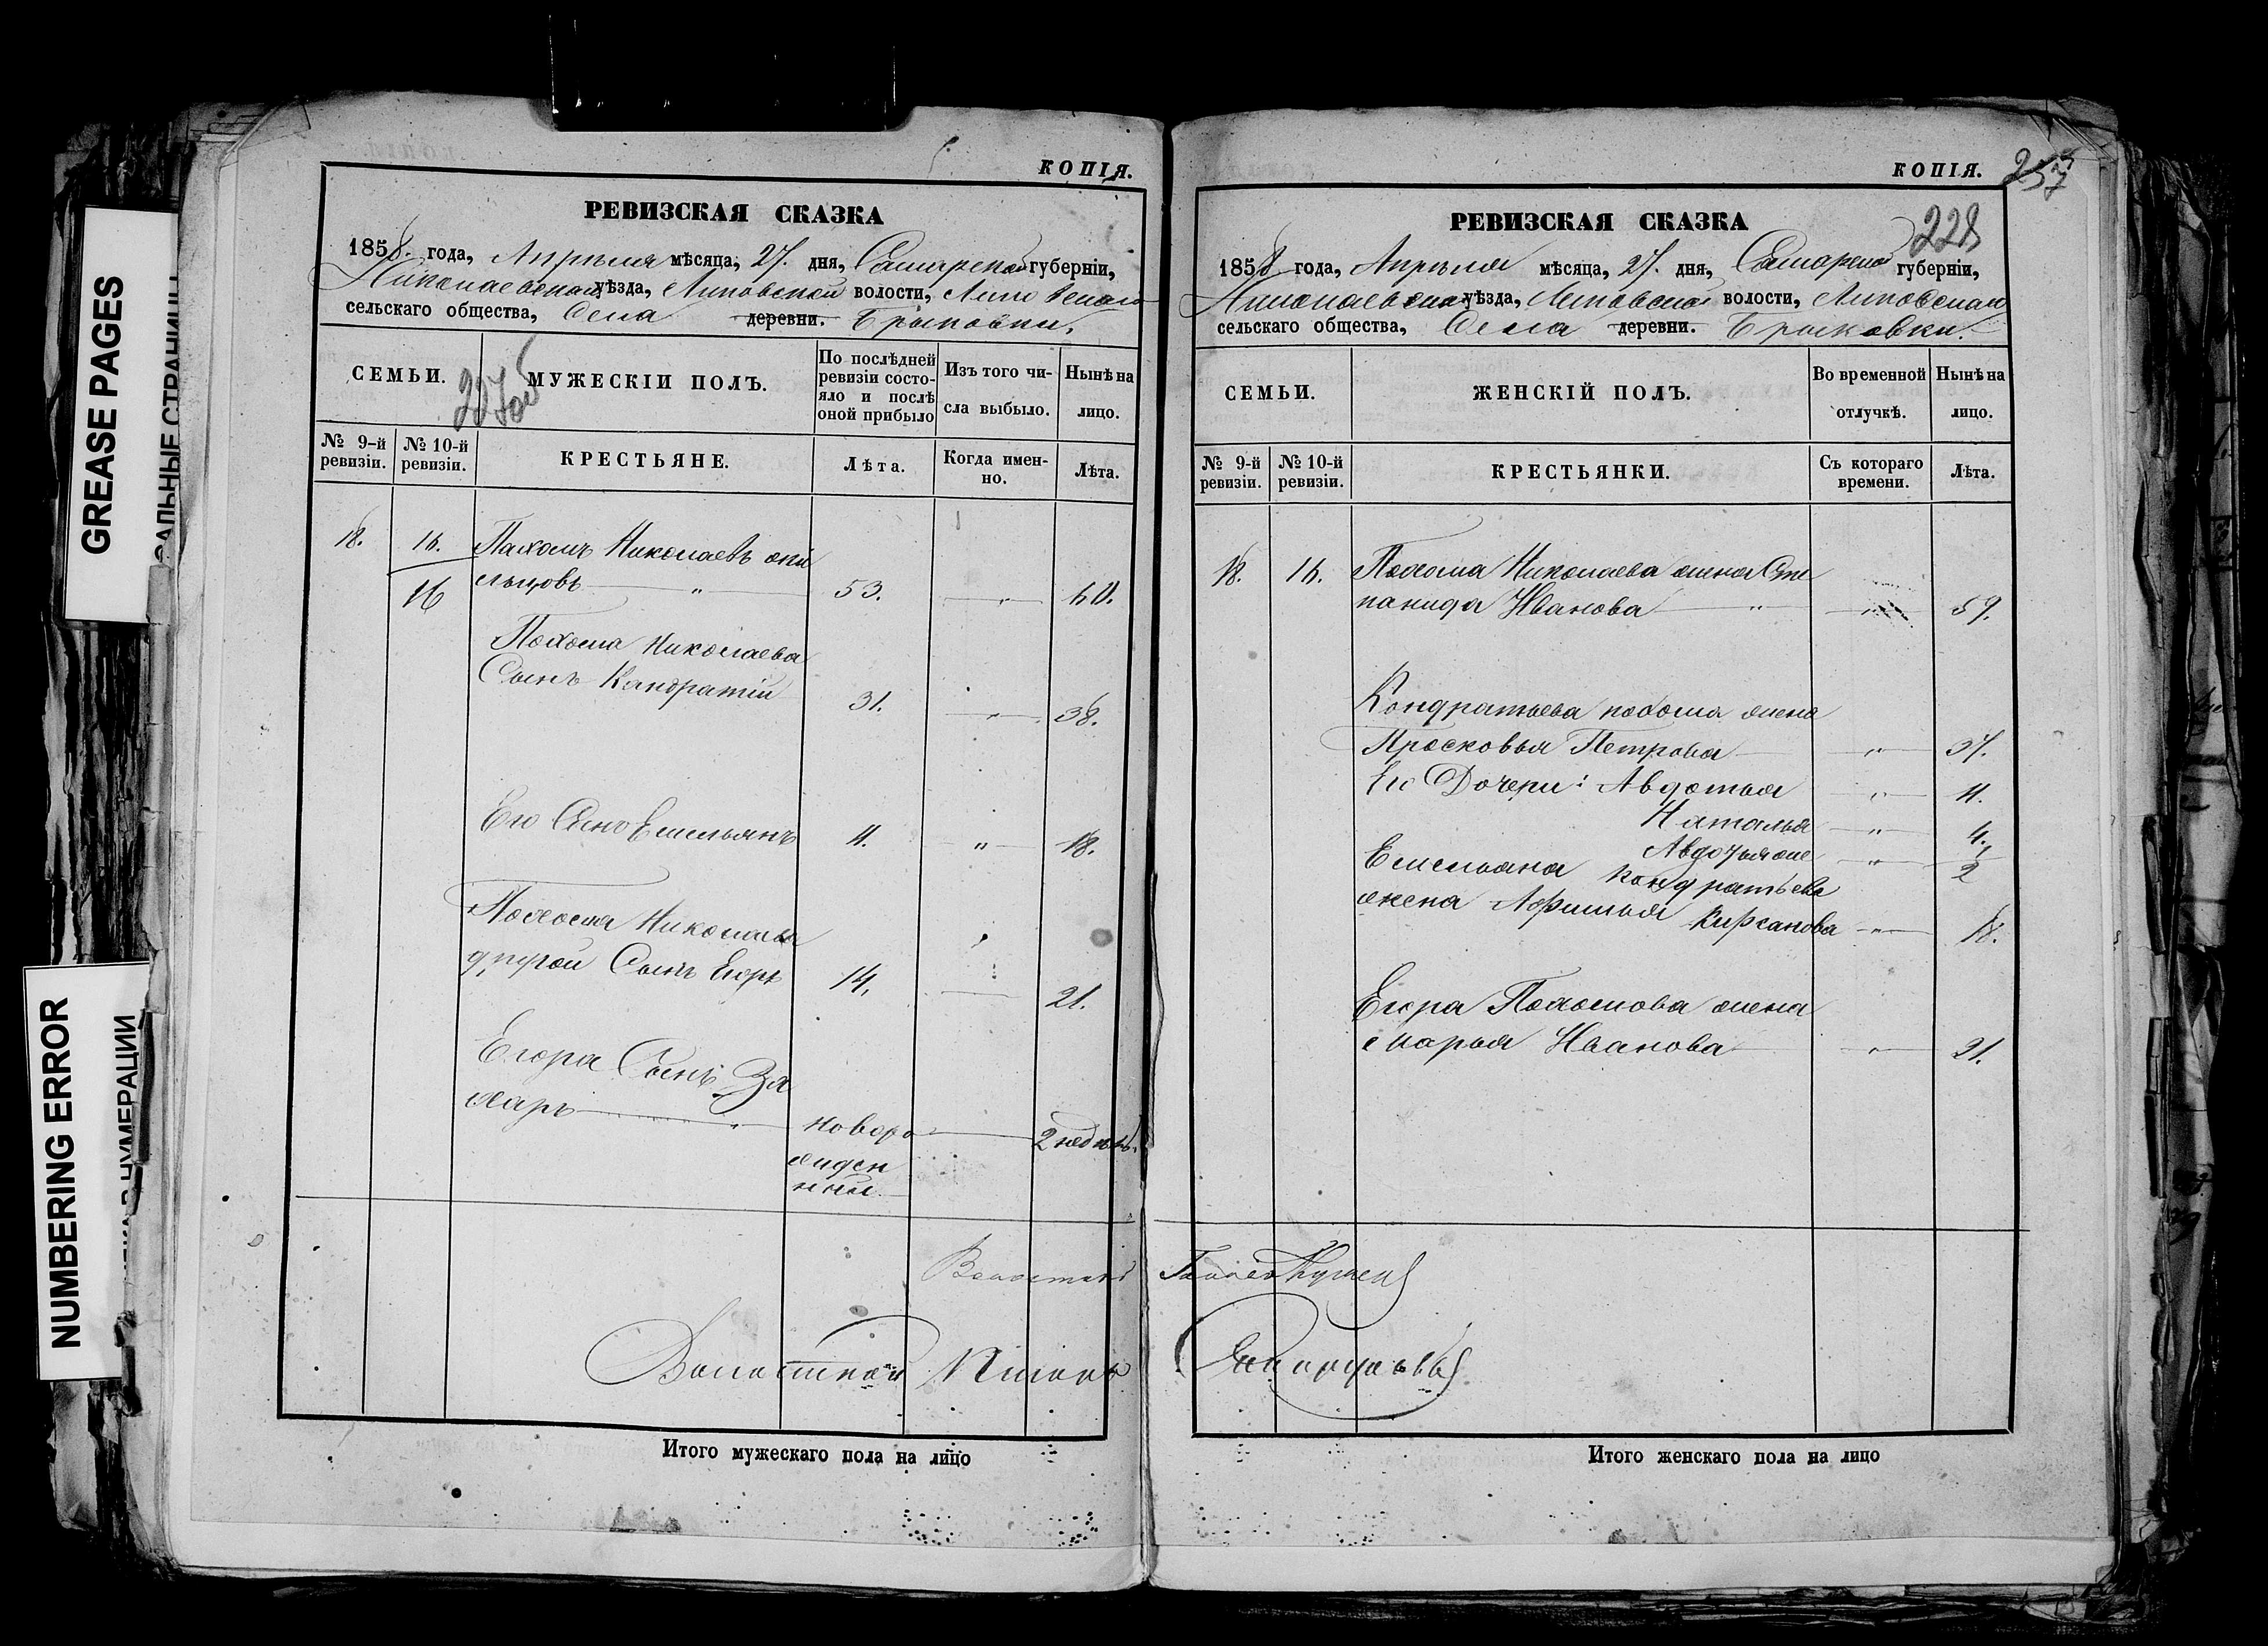 GREASE PAGES
NUMBERING ERROR
КОПІЯ.
РЕВИЗСКАЯ СКАЗКА
1858. года, Апрѣля мѣсяца, 27. дня, Самарской губерніи,
Николаевскаго уѣзда, Липовской волости, Липовскаго
сельскаго общества, Села деревни. Брыковки.
СЕМЬИ.
МУЖЕСКІИ ПОЛЪ.
По послѣдней ревизіи состо-
яло и послѣ оной прибыло
Изъ того чи-
сла выбыло.
Нынѣ на лицо.
№ 9-й ревизіи.
№ 10-й ревизіи.
КРЕСТЬЯНЕ.
Лѣта.
Когда имен-
но.
Лѣта.
18. 16. Пахомъ Николаевъ
16 53. 60.
Пахома Николаева
Сынъ Кандратій 31. 38.
Его Сынъ Емельянъ 11. 18.
Пахома Николаева
другой Сынъ Егоръ 14. 21.
Егора Сынъ За
харъ новоро 2 недѣль.
жден
ный
Волостной
Волостной Писарь
Итого мужескаго пола на лицо
КОПІЯ.
257
228
РЕВИЗСКАЯ СКАЗКА
1858 года, Апрѣля мѣсяца, 27. дня, Самарской губерніи,
Николаевскаго уѣзда, Липовской волости, Липовскаго
сельскаго общества, Села деревни. Брыковки.
СЕМЬИ.
ЖЕНСКІЙ ПОЛЪ.
Во временной отлучкѣ.
Нынѣ на лицо.
№ 9-й ревизіи.
№ 10-й ревизіи.
КРЕСТЬЯНКИ.
Съ котораго времени.
Лѣта.
18. 16. Пахома Николаева жена Сте
панида Иванова 59.
Кондратьева пахома жена
Прасковья Петрова 37.
Его Дочери: Авдотья 11.
Наталья 4.
Емельяна Кандратьева
жена Афимья Кирсанова 18.
Егора Пахомова жена
Марья Иванова 21.
Итого женскаго пола на лицо